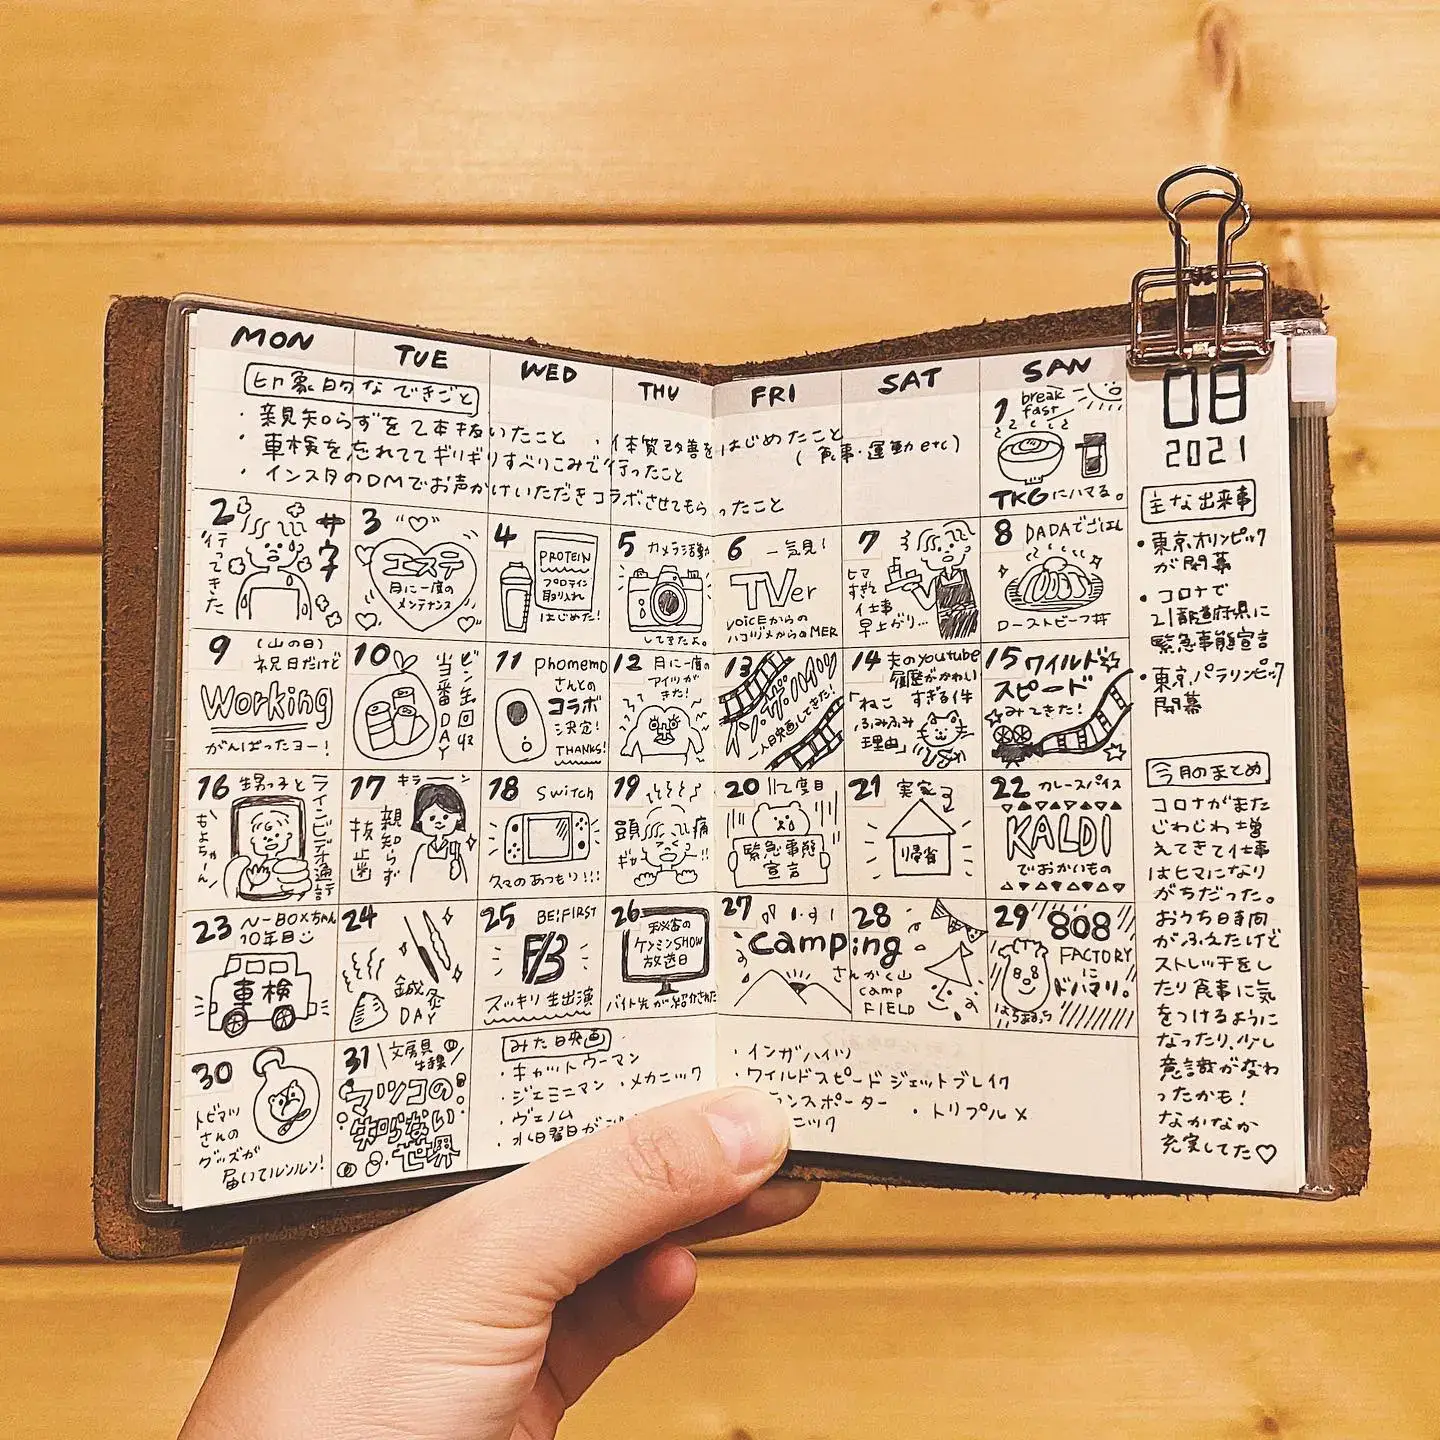 MON TUE WED THU FRI SAT SAN
印象的なできごと
・親知らずを2本抜いたこと
・体質改善をはじめたこと
(食事・運動etc)
・車検を忘れててギリギリすべりこみで行ったこと
・インスタのDMでお声かけいただきコラボさせてもらったこと
1
break
fast
TKGにハマる。
2
サ字
行ってきた
3
エステ
月に一度の
メンテナンス
4
PROTEIN
プロテイン
取り入れ
はじめた!
5
カメラ活動
してきたよ。
6
一気見!
TVer
VOiCEからの
ハコヅメからのMER
7
ヒマ
すぎて
仕事
早上がり…
8
DADAでごはん
ローストビーフ丼
9
(山の日)
祝日だけど
Working
がんばったヨー!
10
ビン缶回収
当番DAY
11
phomemo
さんとの
コラボ
決定!
THANKS!
12
月に一度の
アイツが
きた!
13
インザハイツ
一人映画してきた!
14
夫のyoutube
履歴がかわい
すぎる件
「ねこ
ふみふみ
理由」
15
ワイルド
スピード
みてきた!
16
甥っ子と
ラインビデオ通話
もよちゃん
17
キラーン
親知らず
抜歯
18
switch
久々のあつもり!!!
19
頭痛
ギャー!!
20
緊急事態
宣言
21
実家
帰省
22
カレースパイス
KALDI
でおかいもの
23
N-BOXちゃん
10年目
車検
24
鍼灸
DAY
25
BE:FIRST
スッキリ生出演
26
秘密の
ケンミンSHOW
放送日
バイト先が紹介された
27
camping
28
さんかく山
camp
FIELD
29
808
FACTORY
に
ドハマり。
30
トビマツ
さんの
グッズが
届いてルンルン!
31
文房具
特集
マツコの
知らない
世界
みた映画
・キャットウーマン
・ジェミニマン ・メカニック
・ヴェノム
・水曜日が
・インザハイツ
・ワイルドスピードジェットブレイク
ランスポーター ・トリプルX
ニック
08
2021
主な出来事
・東京オリンピック
が開幕
・コロナで
21都道府県に
緊急事態宣言
・東京パラリンピック
開幕
今月のまとめ
コロナがまた
じわじわ増
えてきて仕事
はヒマになり
がちだった。
おうち時間
がふえたけど
ストレッチをし
たり食事に気
をつけるように
なったり、少し
意識が変わ
ったかも!
なかなか
充実してた♡